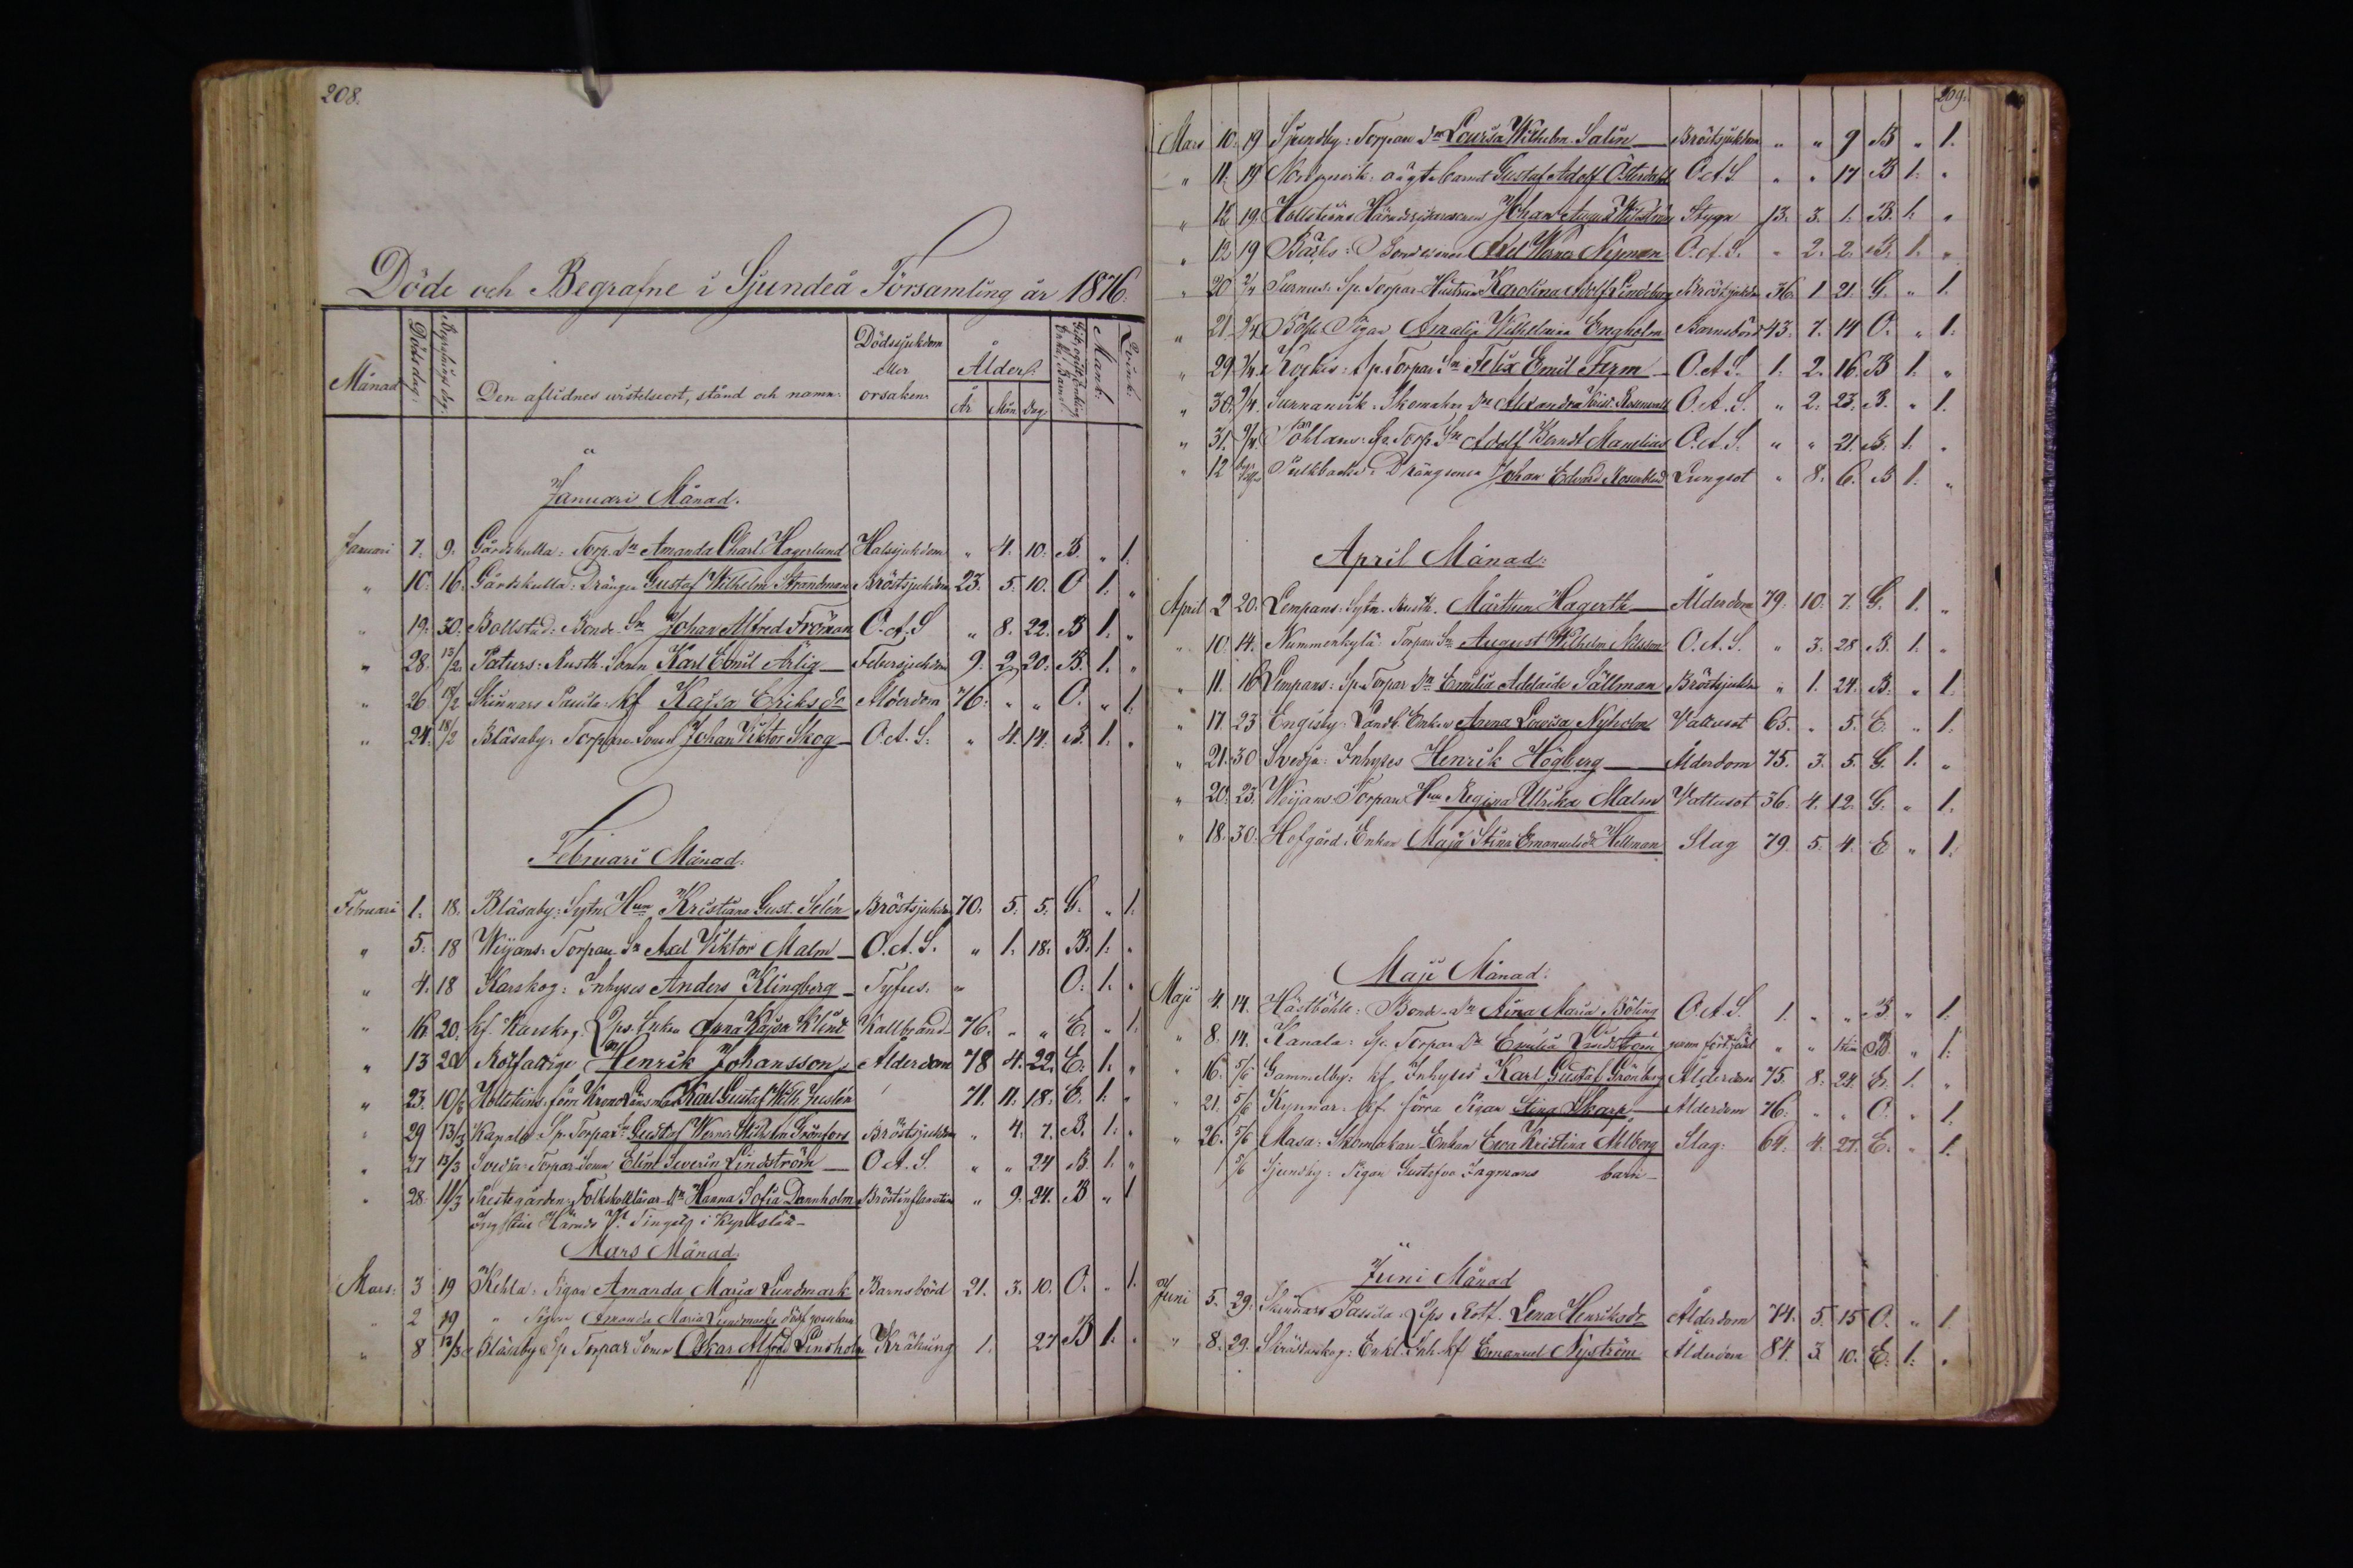 208.
Döde och Begrafne i Sjundeå Församling år 1876.
Månad Dödsdag: Begrafnings dag. Den aflidnes vistelseort, stånd och namn: Dödssjukdom eller orsaken: Ålder: År Mån. Dag. Mank: Qvink:
Januari Månad.
Januari 7. 9. Gårdskulla: Torp. Dr Amanda Charl. Hagerlund Halssjukdom " 4. 10. B. " 1.
" 10. 16. Gårdskulla: Drängen Gustaf Wilhelm Strandman Bröstsjukdom 23. 5. 10. O 1. "
" 19. 30. Bollstad: Bonde Sn Johan Alfred Fröman O.A.S " 8. 22. B 1. "
" 28. 13/2 Paturs: Rusth. Sonen Karl Emil Ärlig Febersjukdom 9. 2. 20. B. 1. "
" 26 18/2 Skinnars Passila: kf Kajsa Eriksdr Ålderdom 76. " " O. " 1.
" 24. 18/2 Blåsaby: Torpare Sonen Johan Viktor Skog O.A.S. " 4. 14. B. 1. "
Februari Månad.
Februari 1. 18. Blåsaby: Sytn. Hun Kristiana Gust. Selén Bröstsjukdom 70. 5. 5. G. " 1.
" 5. 18 Weijans: Torpare Sn Axel Viktor Malm O.A.S. " 1. 18. B. 1. "
" 4. 18 Karskog: Inhyses Anders Klingberg Tyfus. " O. 1. "
" 16 20. kf. Karskog: Enkan Anna Kajsa Klint Kallbrand 76. " " E. " 1.
" 13 20 Rotfattige Henrik Johansson Ålderdom 78 4. 22. E. 1. "
" 23. 10/3 förre Kronolänsman Karl Gustaf Wilh. Juslén 71. 11. 18. E. 1. "
" 29 13/3 Kanala Sp. Torpar Sn Gustaf Werner Wilhelm Grönfors Bröstsjukdom " 4. 7. B. 1. "
" 27 13/3 Svedja: Torpar Sonen Elim Severin Lindström O.A.S. " " 24 B. 1. "
" 28. 11/3 Prestegården: Folkskollärar Dr Hanna Sofia Dannholm Bröstinflamation " 9. 24. B " 1
Mars Månad.
Mars: 3 19 Kehla: Pigan Amanda Maria Lundmark Barnsbörd 21. 3. 10. O. " 1.
" 2 19 " Pigan Amanda Maria Lundmarks
" 8 13/3 Blåsaby Sp. Torpar Sonen Oskar Alfred Lindholm Kräkning 1. 27 B 1. "
209.
Mars 10. 19 Sjundby: Torpare Dr Lovisa Wilhelm. Salin Bröstsjukdom " " 9 B " 1.
" 11. 19 oägta barnet Gustaf Adolf Österdahl O.A.S. " " 17 B 1. "
" 12 19. Johan August Stygn 13. 3. 1. B. 1. "
" 12 19 Bäcks: Bonde sonen Axel Werner Nyman O.A.S. " 2. 2. B. 1. "
" 20 2/4 Purnus: Sp. Torpar Hustrun Karolina Adolf. Lindeberg Bröstsjukdom 36. 1 21. G. " 1.
" 21. 2/4 Böhle Pigan Amalia Wilhelmina Engholm Barnsbörd 43. 7. 14 O. " 1.
" 29 9/4 Sp. Torpar Sn Felix Emil Ferm O.A.S. 1. 2. 16. B 1. "
" 30. 9/4 Sunnanvik: Skomakar Dr Alexandra Krist. Rosenvall O.A.S. " 2. 23. B. " 1.
" 31. 9/4 Påhlans: Sp. Torp. Sn Adolf Berndt Manelius O.A.S. " " 21. B. 1. "
" 12 Sulkbacka: Drängsonen Johan Edvard Rosenblad Lungsot " 8. 6. B 1. "
April Månad:
April 2 20. Lempans: Sytn. Rusth. Mårthen Hagerth Ålderdom 79. 10. 7. G. 1. "
" 10. 14. Nummenkylä: Torpare Sn August Wilhelm Nilsson O.A.S. " 3. 28 B. 1. "
" 11. 16 Lempans: Sp. Torpar Dr Emilia Adelaide Sällman Bröstsjukdom " 1. 24. B. " 1.
" 17. 23 Engisby: Landb. Enkan Anna Lovisa Nyholm Vattusot 65. " 5. E. " 1.
" 21. 30 Svedja: Inhyses Henrik Högberg Ålderdom 75. 3. 5. G. 1. "
" 20. 23. Weijans: Torpare Hun Regina Ulrika Malm Vattusot 36. 4. 12. G. " 1.
" 18. 30. Hofgård: Enkan Maja Stina Emanuelsdr Hellman Slag 79. 5. 4. E " 1.
Maji Månad:
Maji 4. 14. Hästböhle: Bonde Dr Aina Maria Böling O.A.S. 1. " " B " 1.
" 8. 14. Kanala: Sp. Torpar Dr Emilia Lindström " " B. " 1.
" 16. 5/6 Gammelby: kf Inhyses Karl Gustaf Grönberg Ålderdom 75. 8. 24. E. 1. "
" 21. 5/6 Kynnar: kf. förra Pigan Stina Skarp Ålderdom 76. " " O. " 1.
" 26. 5/6 Masa: Skomakare Enkan Eva Kristina Ahlberg Slag: 64. 4. 27. E. " 1.
5/6 Sjundby: Pigan Gustafva Ingmans barn
Juni Månad
Juni 5. 29. Skinnars Passila: Lena Henriksdr Ålderdom 74. 5. 15 O. " 1.
" 8. 29. Enkl. Inh. kf Emanuel Nyström Ålderdom 84. 3. 10. E. 1. "